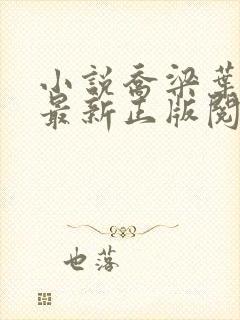 小説喬梁葉
最新正版閱
也落